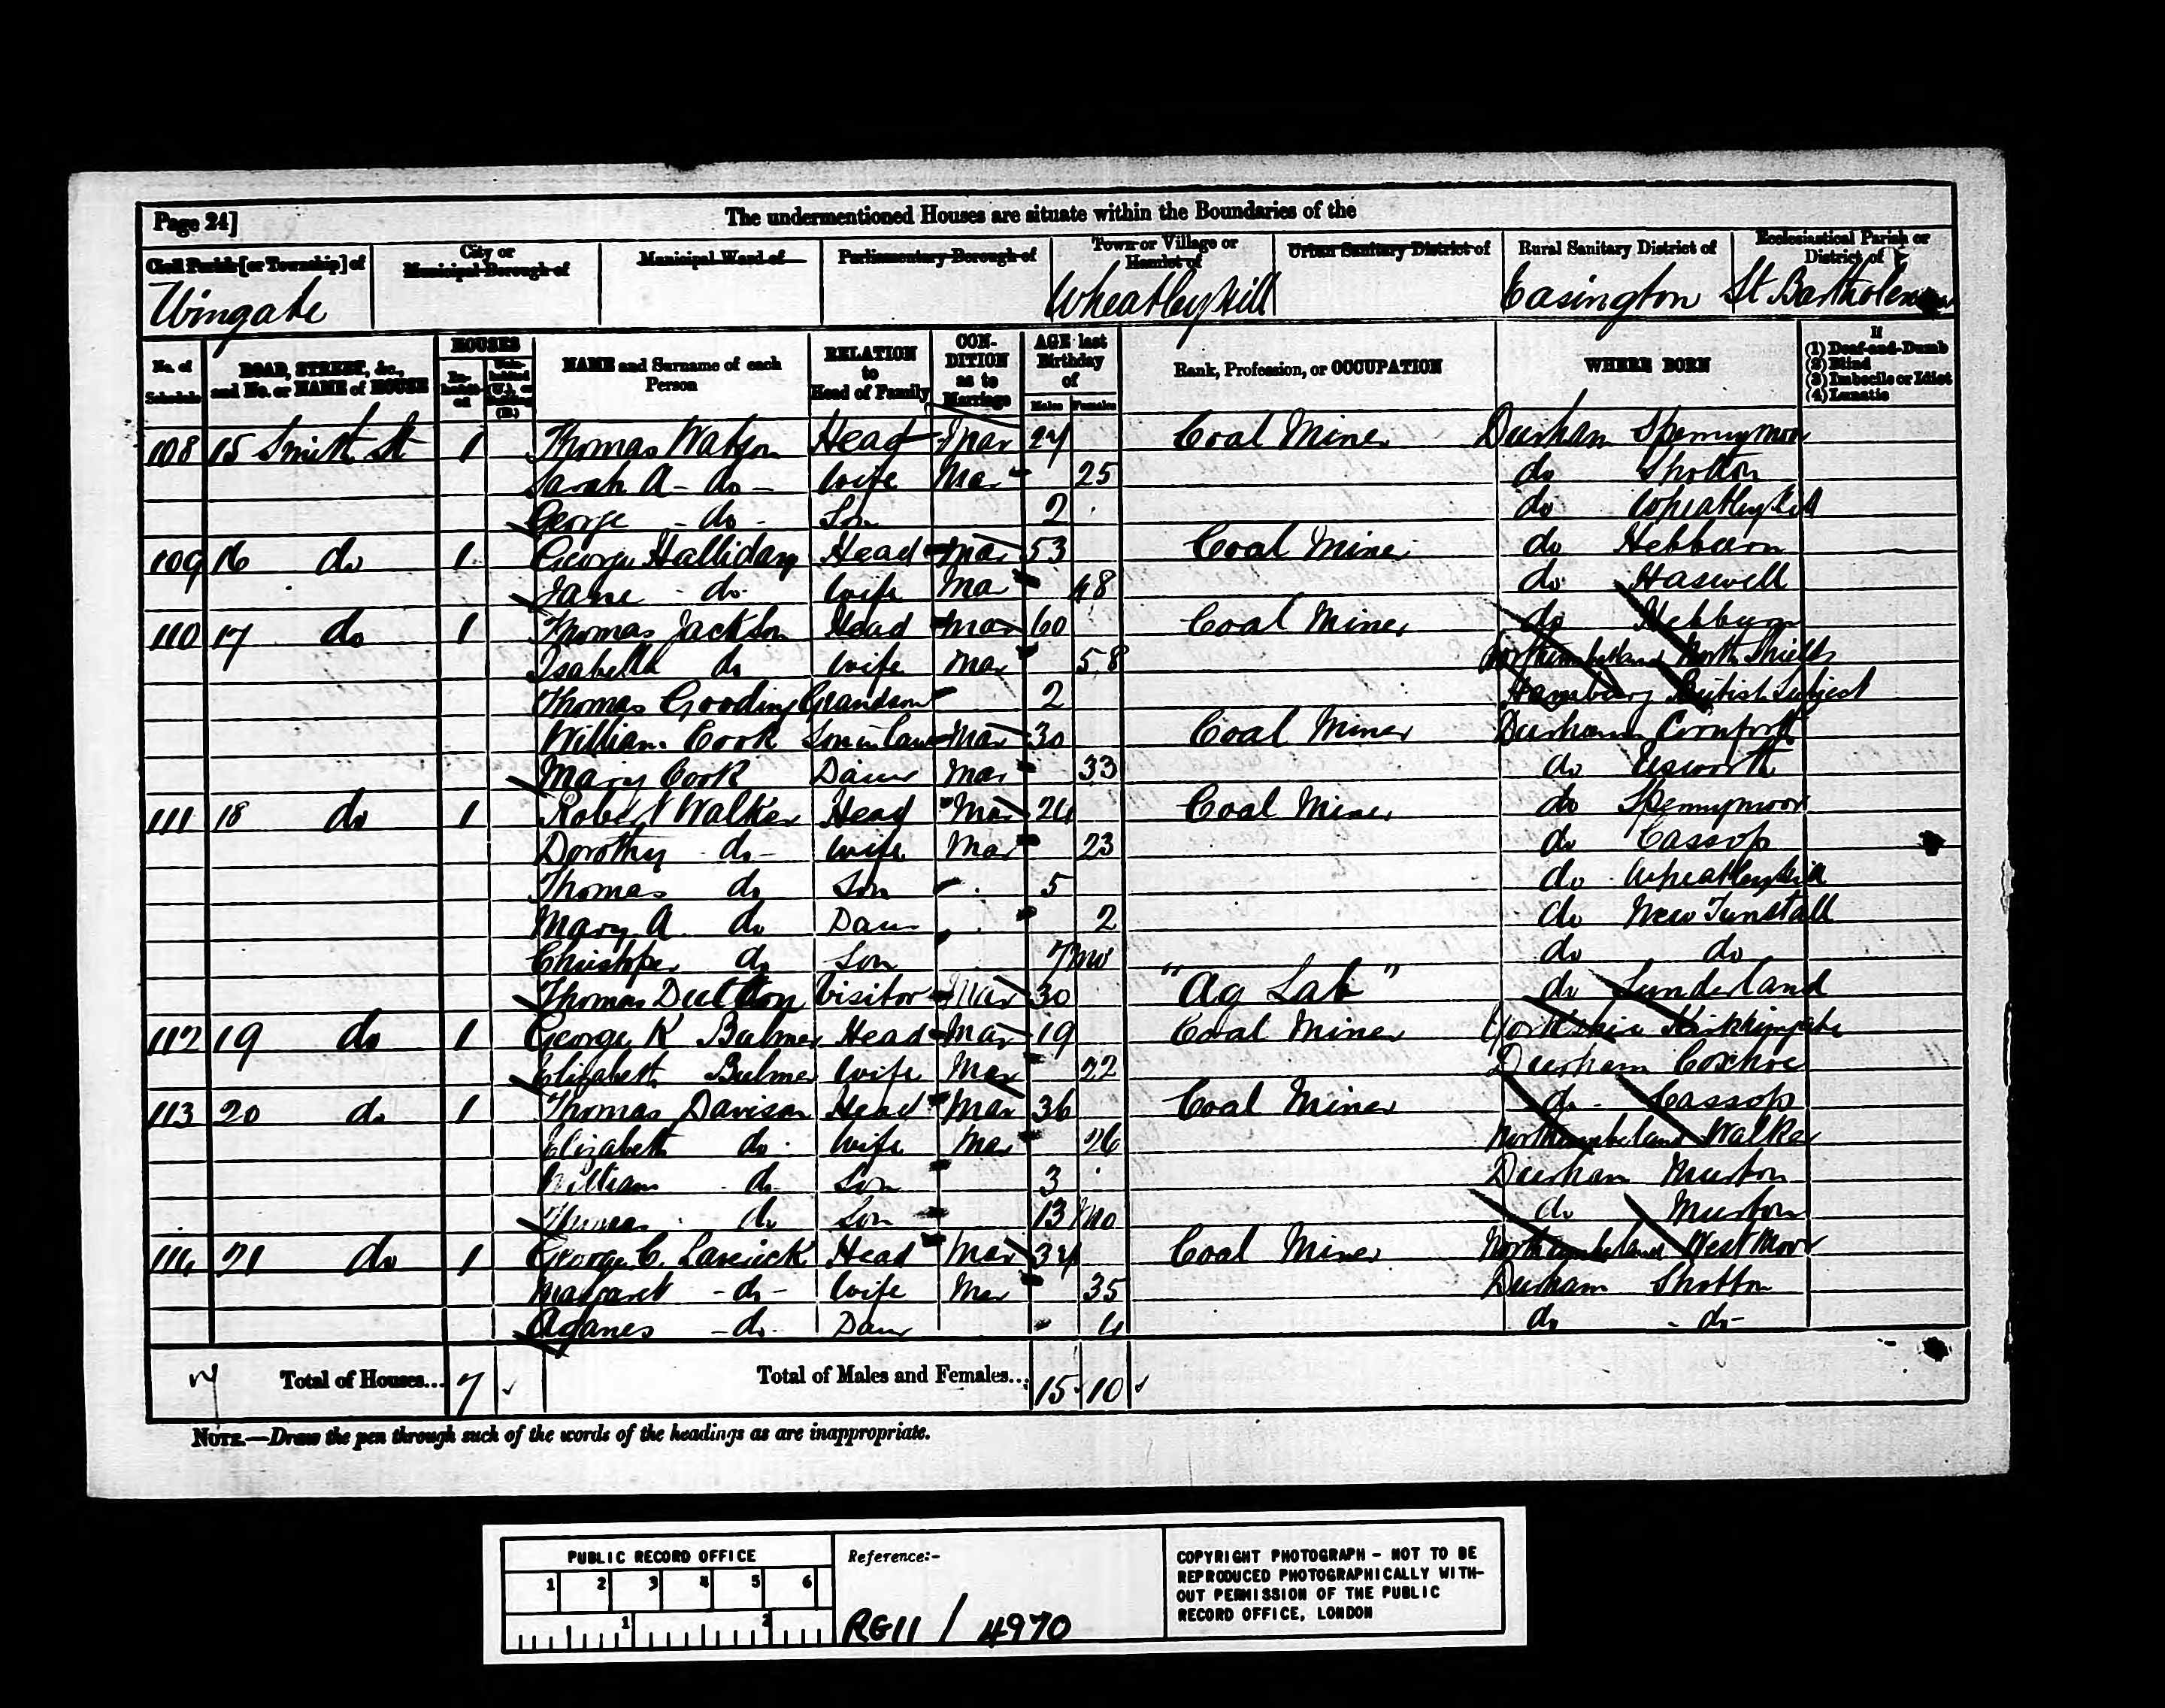 Page 24]
The undermentioned Houses are situate within the Boundaries of the
Civil Parish [or Township] of
City or Municipal Borough of
Municipal Ward of
Parliamentary Borough of
Town or Village or Hamlet of
Urban Sanitary District of
Rural Sanitary District of
Ecclesiastical Parish or District of
Wingate
Wheatleyhill
Easington
St Bartholomew
No. of Schedule
ROAD, STREET, &c., and No. or NAME of HOUSE
HOUSES
Inhabited
Uninhabited (U.), or Building (B.)
NAME and Surname of each Person
RELATION to Head of Family
CONDITION as to Marriage
AGE last Birthday of
Males Females
Rank, Profession, or OCCUPATION
WHERE BORN
If
(1) Deaf-and-Dumb
(2) Blind
(3) Imbecile or Idiot
(4) Lunatic
108 15 Smith St 1 Thomas Watson Head Mar 27 Coal Miner Durham Spennymoor
Sarah A - do - Wife Mar 25 do Shotton
George - do - Son 2 do Wheatleyhill
109 16 do 1 George Halliday Head Mar 53 Coal Miner do Hebburn
Jane - do - Wife Mar 48 do Haswell
110 17 do 1 Thomas Jackson Head Mar 60 Coal Miner do Hebburn
Isabella do Wife Mar 58 Northumberland North Shields
Thomas Gooding Grandson 2 Hamburg British Subject
William Cook Son in Law Mar 30 Coal Miner Durham Cornforth
Mary Cook Daur Mar 33 do Usworth
111 18 do 1 Robert Walker Head Mar 24 Coal Miner do Spennymoor
Dorothy - do - Wife Mar 23 do Cassop
Thomas do Son 5 do Wheatleyhill
Mary A do Daur 2 do New Tunstall
do Son 7 mo do do
Thomas Dutton Visitor Mar 30 "Ag Lab" do Sunderland
112 19 do 1 George K Bulmer Head Mar 19 Coal Miner Yorkshire
Elizabeth Bulmer Wife Mar 22 Durham Coxhoe
113 20 do 1 Thomas Davison Head Mar 36 Coal Miner do Cassop
Elizabeth do Wife Mar 26 Northumberland Walker
William do Son 3 Durham Murton
Thomas do Son 13 mo do Murton
114 21 do 1 George C. Laverick Head Mar 34 Coal Miner Northumberland West Moor
Margaret - do - Wife Mar 35 Durham Shotton
Aganes - do - Daur 4 do - do -
Total of Houses... 7
Total of Males and Females... 15 10
NOTE.—Draw the pen through such of the words of the headings as are inappropriate.
PUBLIC RECORD OFFICE
1 2 3 4 5 6
1 2
Reference:-
RG11 / 4970
COPYRIGHT PHOTOGRAPH - NOT TO BE
REPRODUCED PHOTOGRAPHICALLY WITH-
OUT PERMISSION OF THE PUBLIC
RECORD OFFICE, LONDON